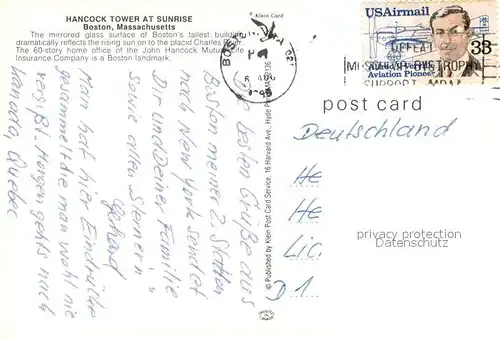 HANCOCK TOWER AT SUNRISE
Boston, Massachusetts
The mirrored glass surface of Boston's tallest building
dramatically reflects the rising sun on to the placid Charles River.
The 60-story home office of the John Hancock Mutual Life
Insurance Company is a Boston landmark.
Klein Card
USAirmail
33
Alfred V. Verville
Aviation Pioneer
DEFEAT
MUSCULAR DYSTROPHY
SUPPORT MDA
BOSTON MA 021
PM
6 AUG
post card
© Published by Klein Post Card Service, 16 Harvard Ave., Hyde Park, MA 02136
Die besten Grüße aus
Boston meiner 2. Station
nach New York sendet
Dir und Deiner Familie
sowie allen Sternern
Gerhard
Man hat hier Eindrücke
gesammelt die man wohl nie
vergißt. Morgen gehts nach
Kanada, Quebec
Deutschland
He
He
Lic
D1
privacy protection
Datenschutz